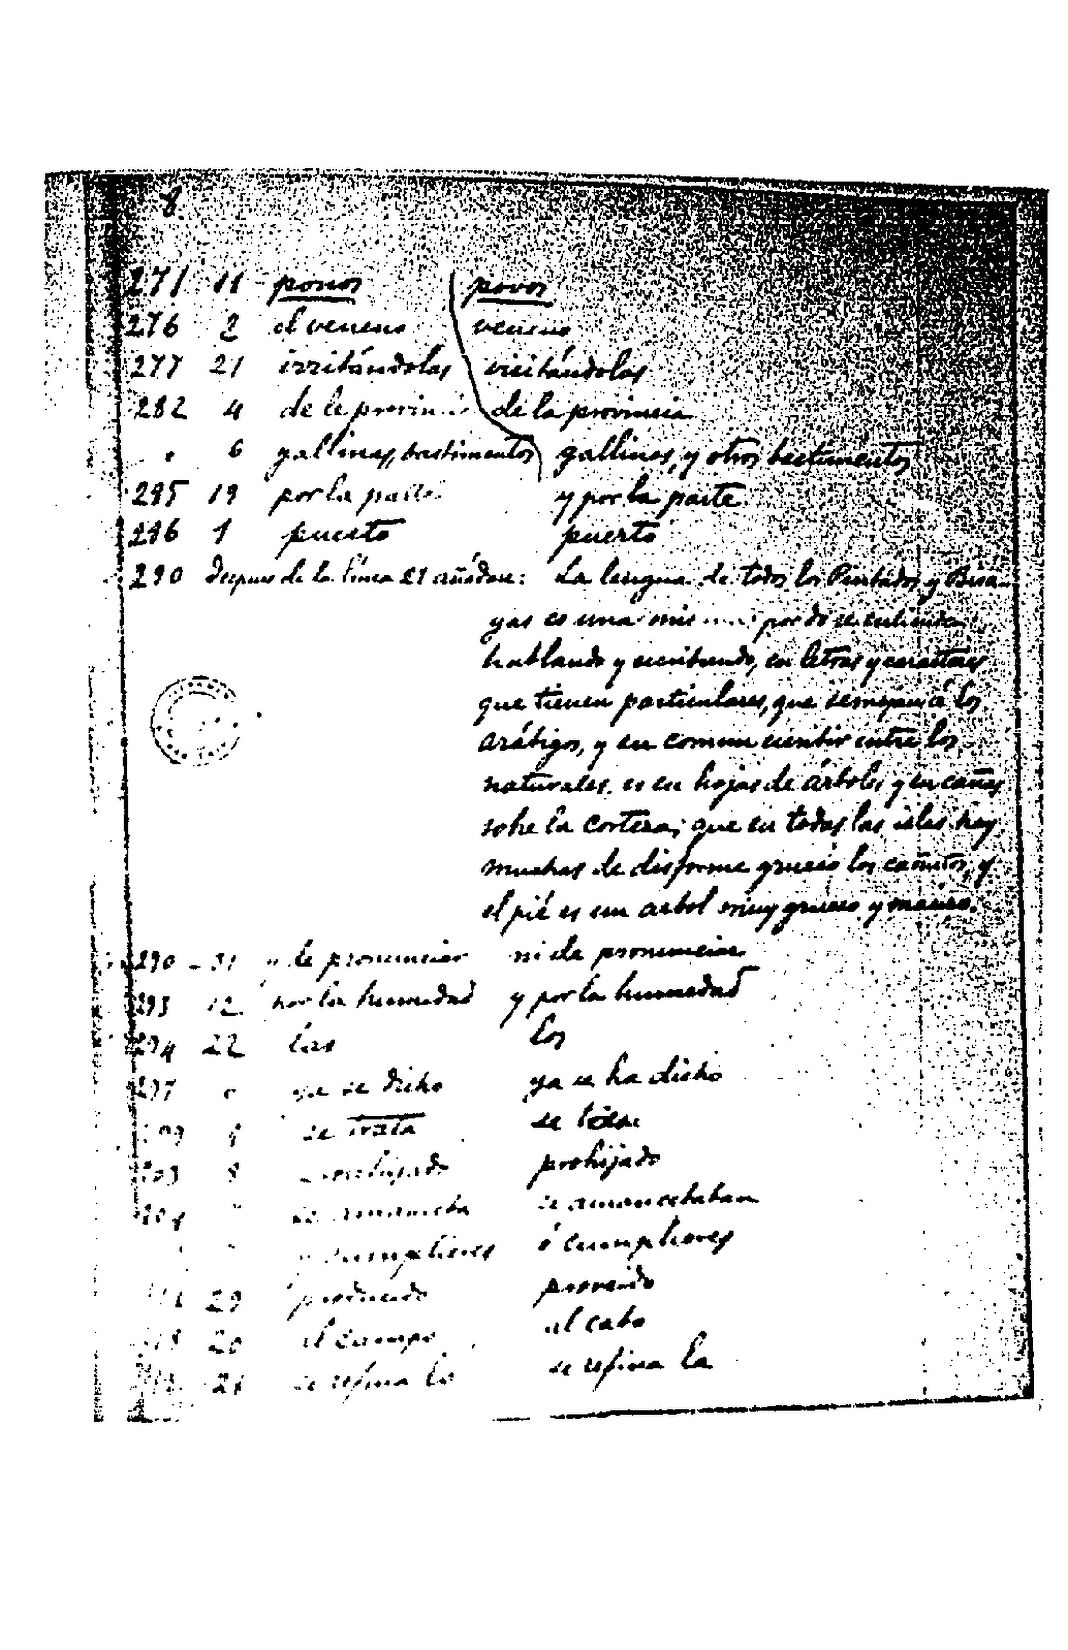 8
271 11 ponos povos
276 2 el veneno veneno
277 21 irritándolas visitándolas
282 4 de le provincia de la provincia
" 6 gallinas, bastimentos gallinas, y otros bastimentos
285 19 por la parte y por la parte
286 1 puesto puerto
290 despues de la línea 21 añadase: La lengua de todos los Pintados y Bisa-
yas es una mis por do se entienden
hablando y escribiendo, en letras y caracteres
que tienen particulares, que semejan á los
arábigos, y su comun escribir entre los
naturales es en hojas de árboles y en cañas
sobre la corteza; que en todas las islas hay
muchas de disforme grueso los cañutos, y
el pié es un arbol muy grueso y macizo.
290 - 31 de pronunciar ni de pronunciar
293 12 por la humedad y por la humedad
294 22 las los
297 ya se dicho ya se ha dicho
se trata se
8 prohijado
se amancebaban
ó cumpliores
29 producido proveido
20 el campo al cabo
21 se refina lo se refina la